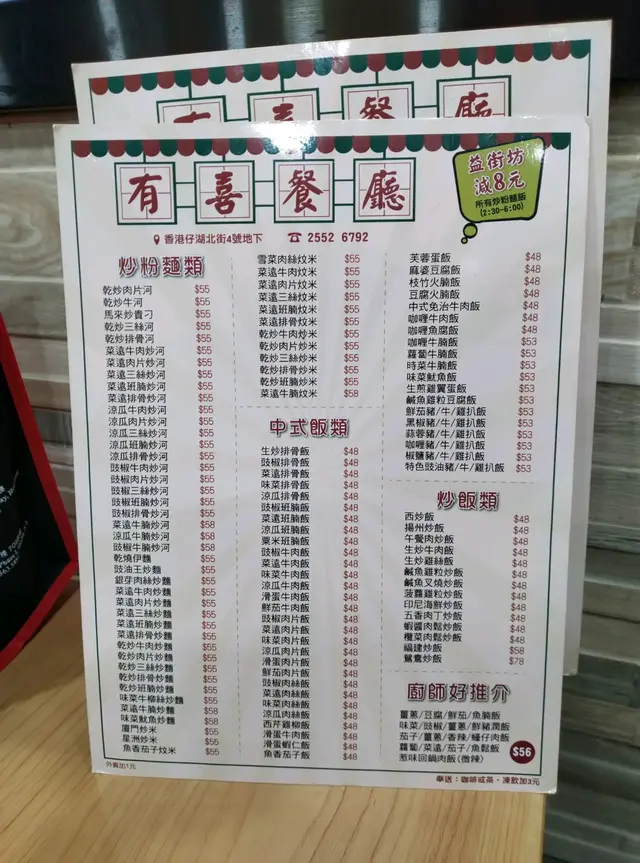 有喜餐廳
益街坊
減8元
所有炒粉麵飯
(2:30-6:00)
香港仔湖北街4號地下 ☎ 2552 6792
炒粉麵類
乾炒肉片河 $55
乾炒牛河 $55
馬來炒貴刁 $55
乾炒三絲河 $55
乾炒排骨河 $55
菜遠牛肉炒河 $55
菜遠肉片炒河 $55
菜遠三絲炒河 $55
菜遠班腩炒河 $55
菜遠排骨炒河 $55
涼瓜牛肉炒河 $55
涼瓜肉片炒河 $55
涼瓜三絲炒河 $55
涼瓜班腩炒河 $55
涼瓜排骨炒河 $55
豉椒牛肉炒河 $55
豉椒肉片炒河 $55
豉椒三絲炒河 $55
豉椒班腩炒河 $55
豉椒排骨炒河 $55
菜遠牛腩炒河 $58
涼瓜牛腩炒河 $58
豉椒牛腩炒河 $58
乾燒伊麵 $55
豉油王炒麵 $55
銀芽肉絲炒麵 $55
菜遠牛肉炒麵 $55
菜遠肉片炒麵 $55
菜遠三絲炒麵 $55
菜遠班腩炒麵 $55
菜遠排骨炒麵 $55
乾炒牛肉炒麵 $55
乾炒肉片炒麵 $55
乾炒三絲炒麵 $55
乾炒排骨炒麵 $55
乾炒班腩炒麵 $55
味菜牛柳絲炒麵 $55
菜遠牛腩炒麵 $58
味菜魷魚炒麵 $58
廈門炒米 $55
星洲炒米 $55
魚香茄子炆米 $55
外賣加1元
雪菜肉絲炆米 $55
菜遠牛肉炆米 $55
菜遠肉片炆米 $55
菜遠三絲炆米 $55
菜遠班腩炆米 $55
菜遠排骨炆米 $55
乾炒牛肉炆米 $55
乾炒肉片炆米 $55
乾炒三絲炆米 $55
乾炒排骨炆米 $55
乾炒班腩炆米 $55
菜遠牛腩炆米 $58
中式飯類
生炒排骨飯 $48
豉椒排骨飯 $48
菜遠排骨飯 $48
味菜排骨飯 $48
涼瓜排骨飯 $48
豉椒班腩飯 $48
菜遠班腩飯 $48
涼瓜班腩飯 $48
粟米班腩飯 $48
豉椒牛肉飯 $48
菜遠牛肉飯 $48
味菜牛肉飯 $48
涼瓜牛肉飯 $48
滑蛋牛肉飯 $48
鮮茄牛肉飯 $48
豉椒肉片飯 $48
菜遠肉片飯 $48
味菜肉片飯 $48
涼瓜肉片飯 $48
滑蛋肉片飯 $48
鮮茄肉片飯 $48
豉椒肉絲飯 $48
菜遠肉絲飯 $48
味菜肉絲飯 $48
涼瓜肉絲飯 $48
西芹雞柳飯 $48
滑蛋牛肉飯 $48
滑蛋蝦仁飯 $48
魚香茄子飯 $48
芙蓉蛋飯 $48
麻婆豆腐飯 $48
枝竹火腩飯 $48
豆腐火腩飯 $48
中式免治牛肉飯 $48
咖喱牛肉飯 $48
咖喱魚腐飯 $48
咖喱牛腩飯 $53
蘿蔔牛腩飯 $53
時菜牛腩飯 $53
味菜魷魚飯 $53
生煎雞翼蛋飯 $53
鹹魚雞粒豆腐飯 $53
鮮茄豬/牛/雞扒飯 $53
黑椒豬/牛/雞扒飯 $53
蒜蓉豬/牛/雞扒飯 $53
咖喱豬/牛/雞扒飯 $53
椒鹽豬/牛/雞扒飯 $53
特色豉油豬/牛/雞扒飯 $53
炒飯類
西炒飯 $48
揚州炒飯 $48
午餐肉炒飯 $48
生炒牛肉飯 $48
生炒雞絲飯 $48
鹹魚雞粒炒飯 $48
鹹魚叉燒炒飯 $48
菠蘿雞粒炒飯 $48
印尼海鮮炒飯 $48
五香肉丁炒飯 $48
蝦醬肉鬆炒飯 $48
欖菜肉鬆炒飯 $48
福建炒飯 $58
鴛鴦炒飯 $78
廚師好推介
薑蔥/豆腐/鮮茄/魚腩飯
味菜/豉椒/薑蔥/鮮豬潤飯
茄子/薑蔥/香辣/鱔仔肉飯
蘿蔔/菜遠/茄子/魚鬆飯
惹味回鍋肉飯(微辣)
$56
奉送:咖啡或茶,凍飲加3元